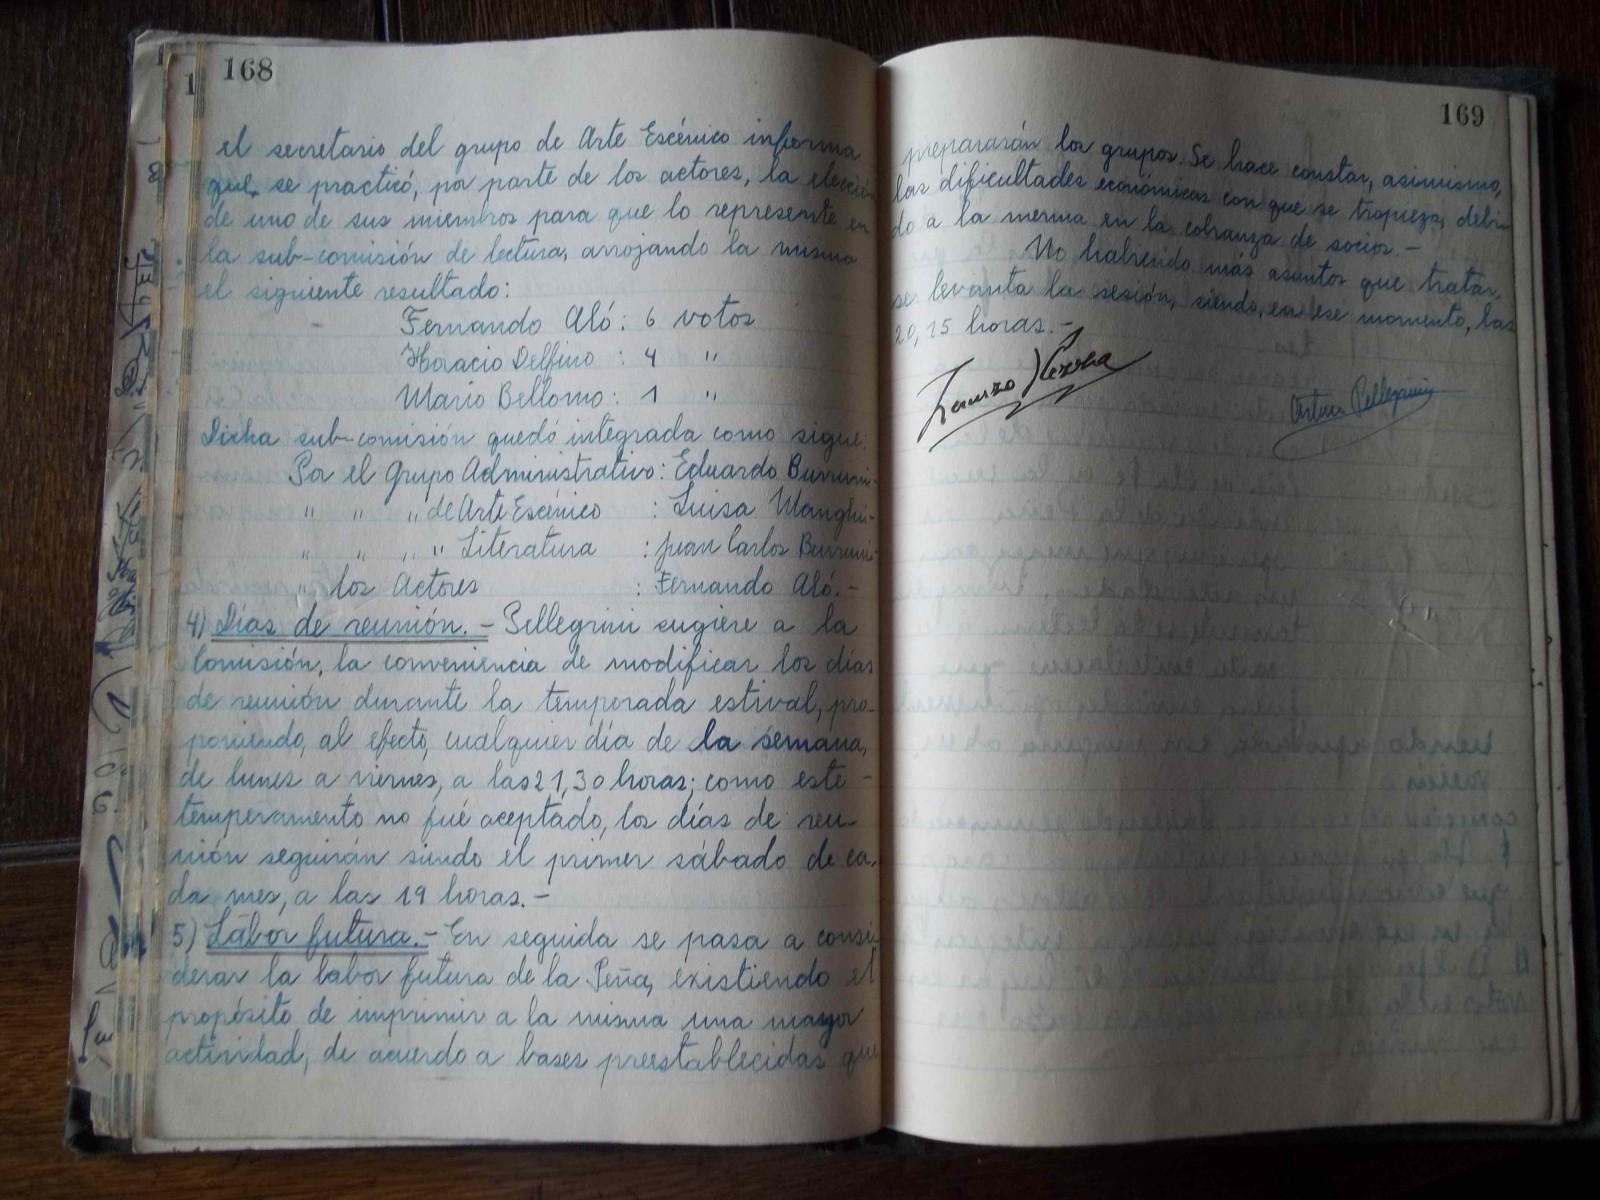 168
el secretario del grupo de Arte Escénico informa
que se practicó, por parte de los actores, la elección
de uno de sus miembros para que lo represente en
la sub-comisión de lectura, arrojando la misma
el siguiente resultado:
Fernando Aló: 6 votos
Horacio Delfino: 4 "
Mario Bellomo: 1 "
Dicha sub-comisión quedó integrada como sigue:
Por el Grupo Administrativo: Eduardo
" " " de Arte Escénico : Luisa
" " " " Literatura : Juan Carlos
" los Actores : Fernando Aló.-
4) Días de reunión.- Pellegrini sugiere a la
Comisión, la conveniencia de modificar los días
de reunión durante la temporada estival, pro-
poniendo, al efecto, cualquier día de la semana,
de lunes a viernes, a las 21,30 horas; como este -
temperamento no fué aceptado, los días de reu-
nión seguirán siendo el primer sábado de ca-
da mes, a las 19 horas.-
5) Labor futura.- En seguida se pasa a consi-
derar la labor futura de la Peña, existiendo el
propósito de imprimir a la misma una mayor
actividad, de acuerdo a bases preestablecidas que
169
prepararán los grupos. Se hace constar, asimismo,
las dificultades económicas con que se tropieza, debi-
do a la merma en la cobranza de socios.-
No habiendo más asuntos que tratar,
se levanta la sesión, siendo, en ese momento, las
20,15 horas.-
Arturo Pellegrini